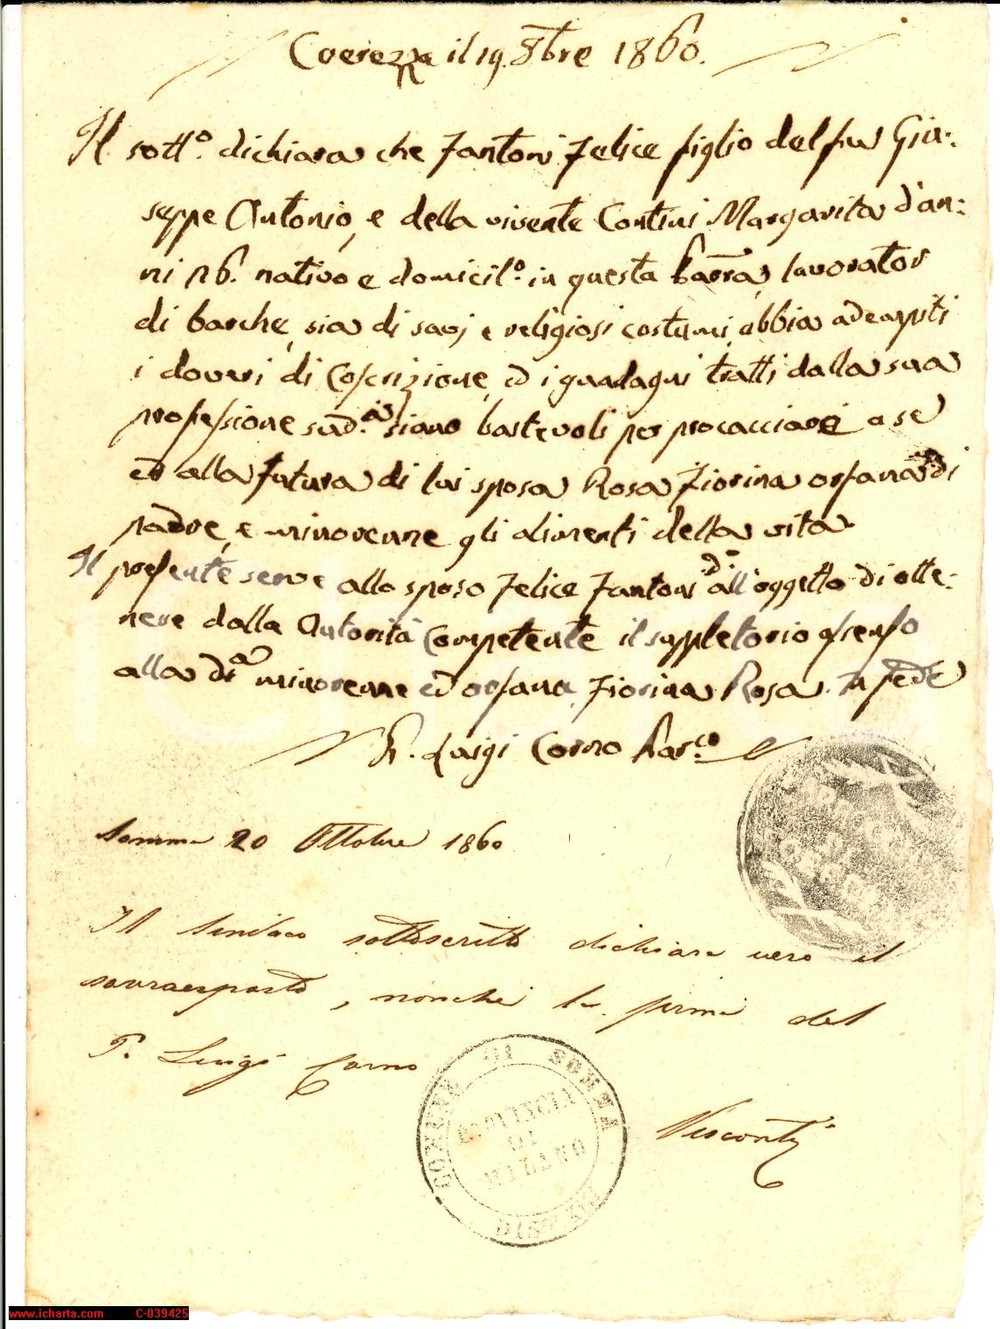 Coerezza il 19. 8bre 1860.
Il sott.o dichiara che Fantoni Felice figlio del fu Giu=
seppe Antonio, e della vivente Contini Margarita d'an=
ni 26. nativo e domicil.o in questa Parra, lavorator
di barche, sia di savj e religiosi costumi, abbia adempiti
i doveri di Coscrizione, ed i guadagni tratti dalla sua
professione sud.a siano bastevoli per procacciare a se
ed alla futura di lui sposa Rosa Fiorina orfana di
padre, e minorenne gli alimenti della vita
Il presente serve allo sposo Felice Fantoni d.o all'oggetto di otte=
nere dalla Autorità Competente il suppletorio assenso
alla d.a minorenne ed orfana Fiorina Rosa. In fede
P. Luigi Corno Par.co
Somma 20 Ottobre 1860
Il Sindaco sottoscritto dichiara vero il
sovraesposto, nonché la firma del
P. Luigi Corno
Visconti
COMUNE DI SOMMA
PROVINCIA
DI
MILANO
www.icharta.com C-039425